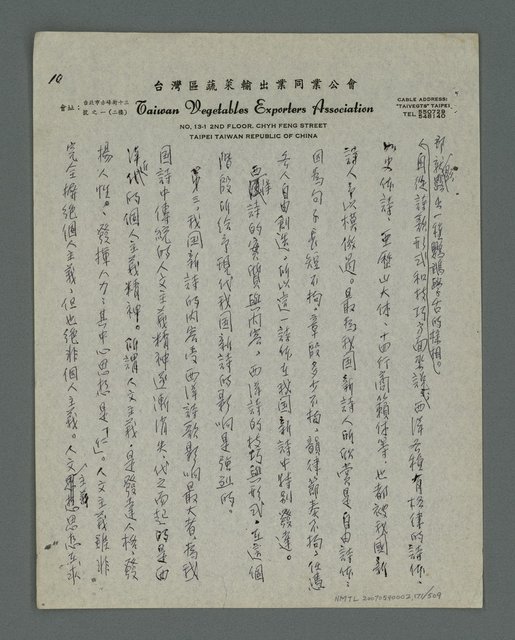 10
台灣區蔬菜輸出業同業公會
會址：台北市赤峰街十三號之一(二樓)
Taiwan Vegetables Exporters Association
CABLE ADDRESS:
"TAIVEGTS" TAIPEI
TEL
NO. 13-1 2ND FLOOR. CHYH FENG STREET
TAIPEI TAIWAN REPUBLIC OF CHINA
一種鸚鵡學舌的怪相。
自從詩新形式和技巧方面來說，西洋各種有格律的詩体，
如史体詩、亞歷山大体、十四行商籟体等，也都被我國新
詩人予以模倣過。最為我國新詩人所欣賞是自由詩体，
因為句子長短不拘，章段多少不拘，韻律節奏不拘，任憑
各人自由創造。所以這一詩体在我國新詩中特別發達。
西洋詩的實質與內容，西洋詩的技巧與形式，在這個
階段所給予現代我国新詩的影响是強烈的。
第三，我国新詩的內容受西洋詩歌影响最大者，為我
国詩中傳統的人文主義精神逐漸消失，代之而起的是西
洋近代的個人主義精神。所謂人文主義，是發達人格，發
揚人性，發揮人力；其中心思想是「仁」。人文主義雖非
完全摒絕個人主義，但也絕非個人主義。人文主義思想在求
NMTL 20070540002,171/509